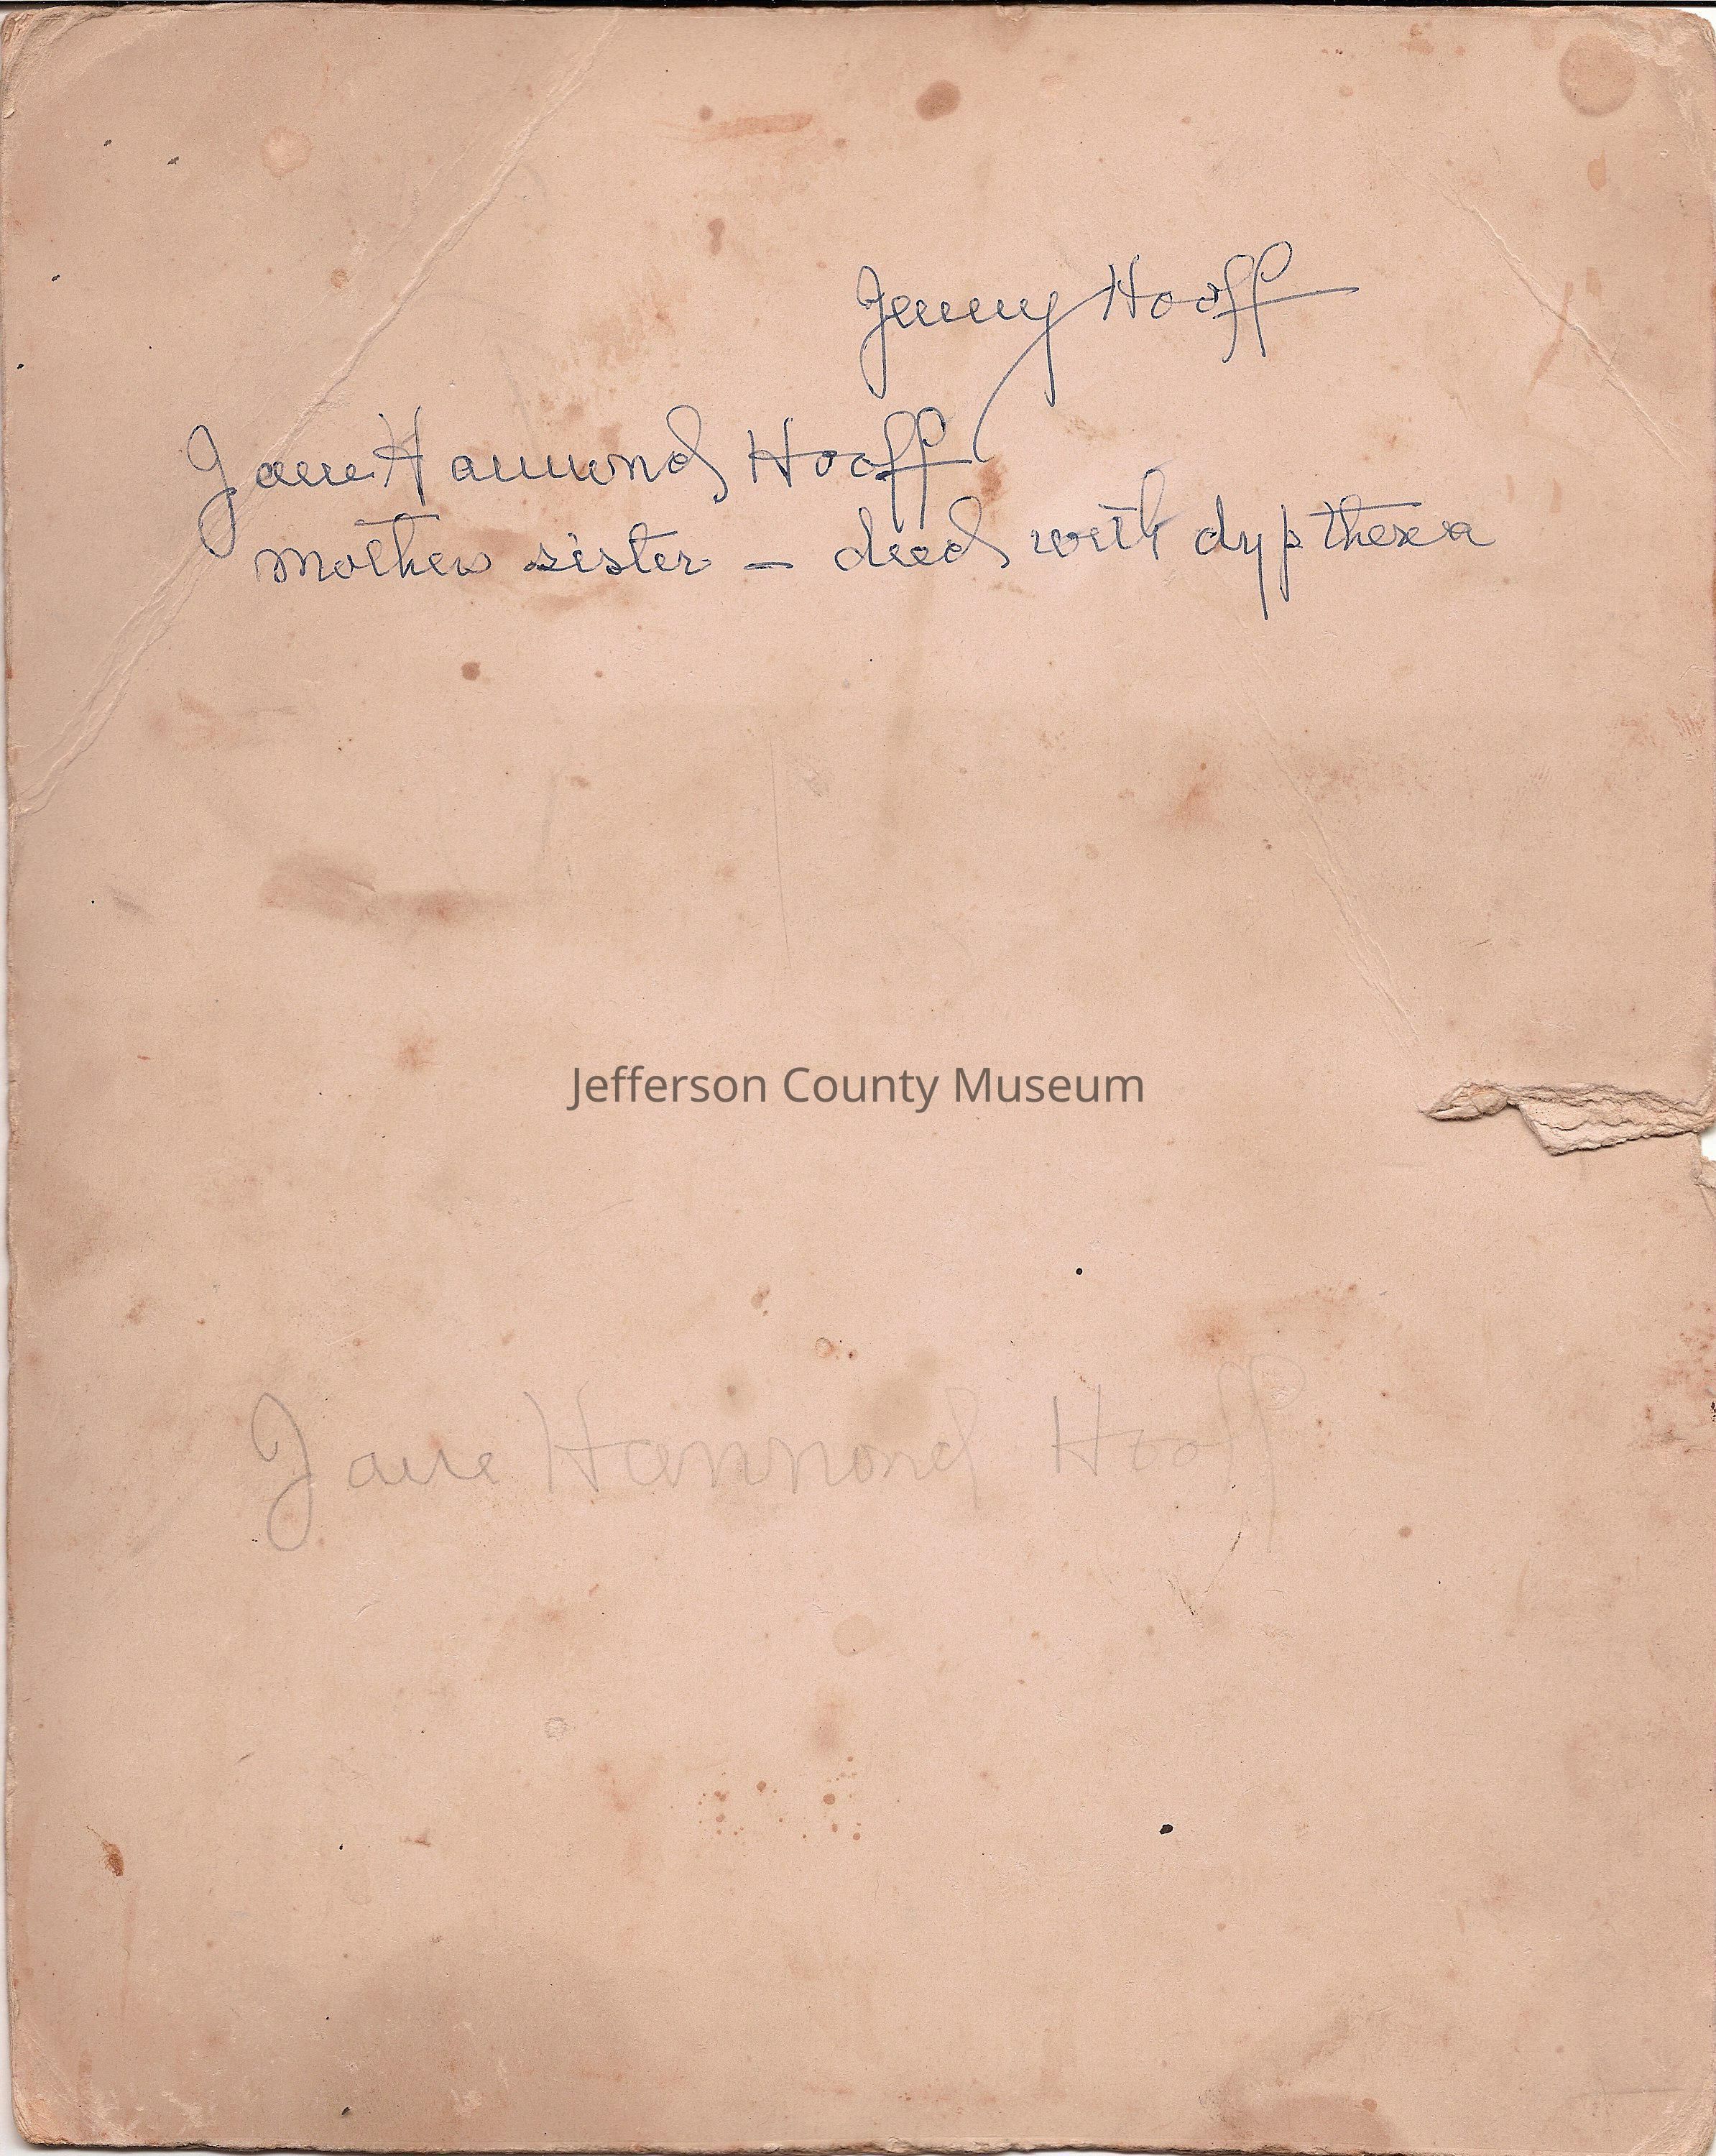 Jenny Hooff
Jane Hammond Hooff
mothers sister – died with dyptherea
Jefferson County Museum
Jane Hammond Hooff